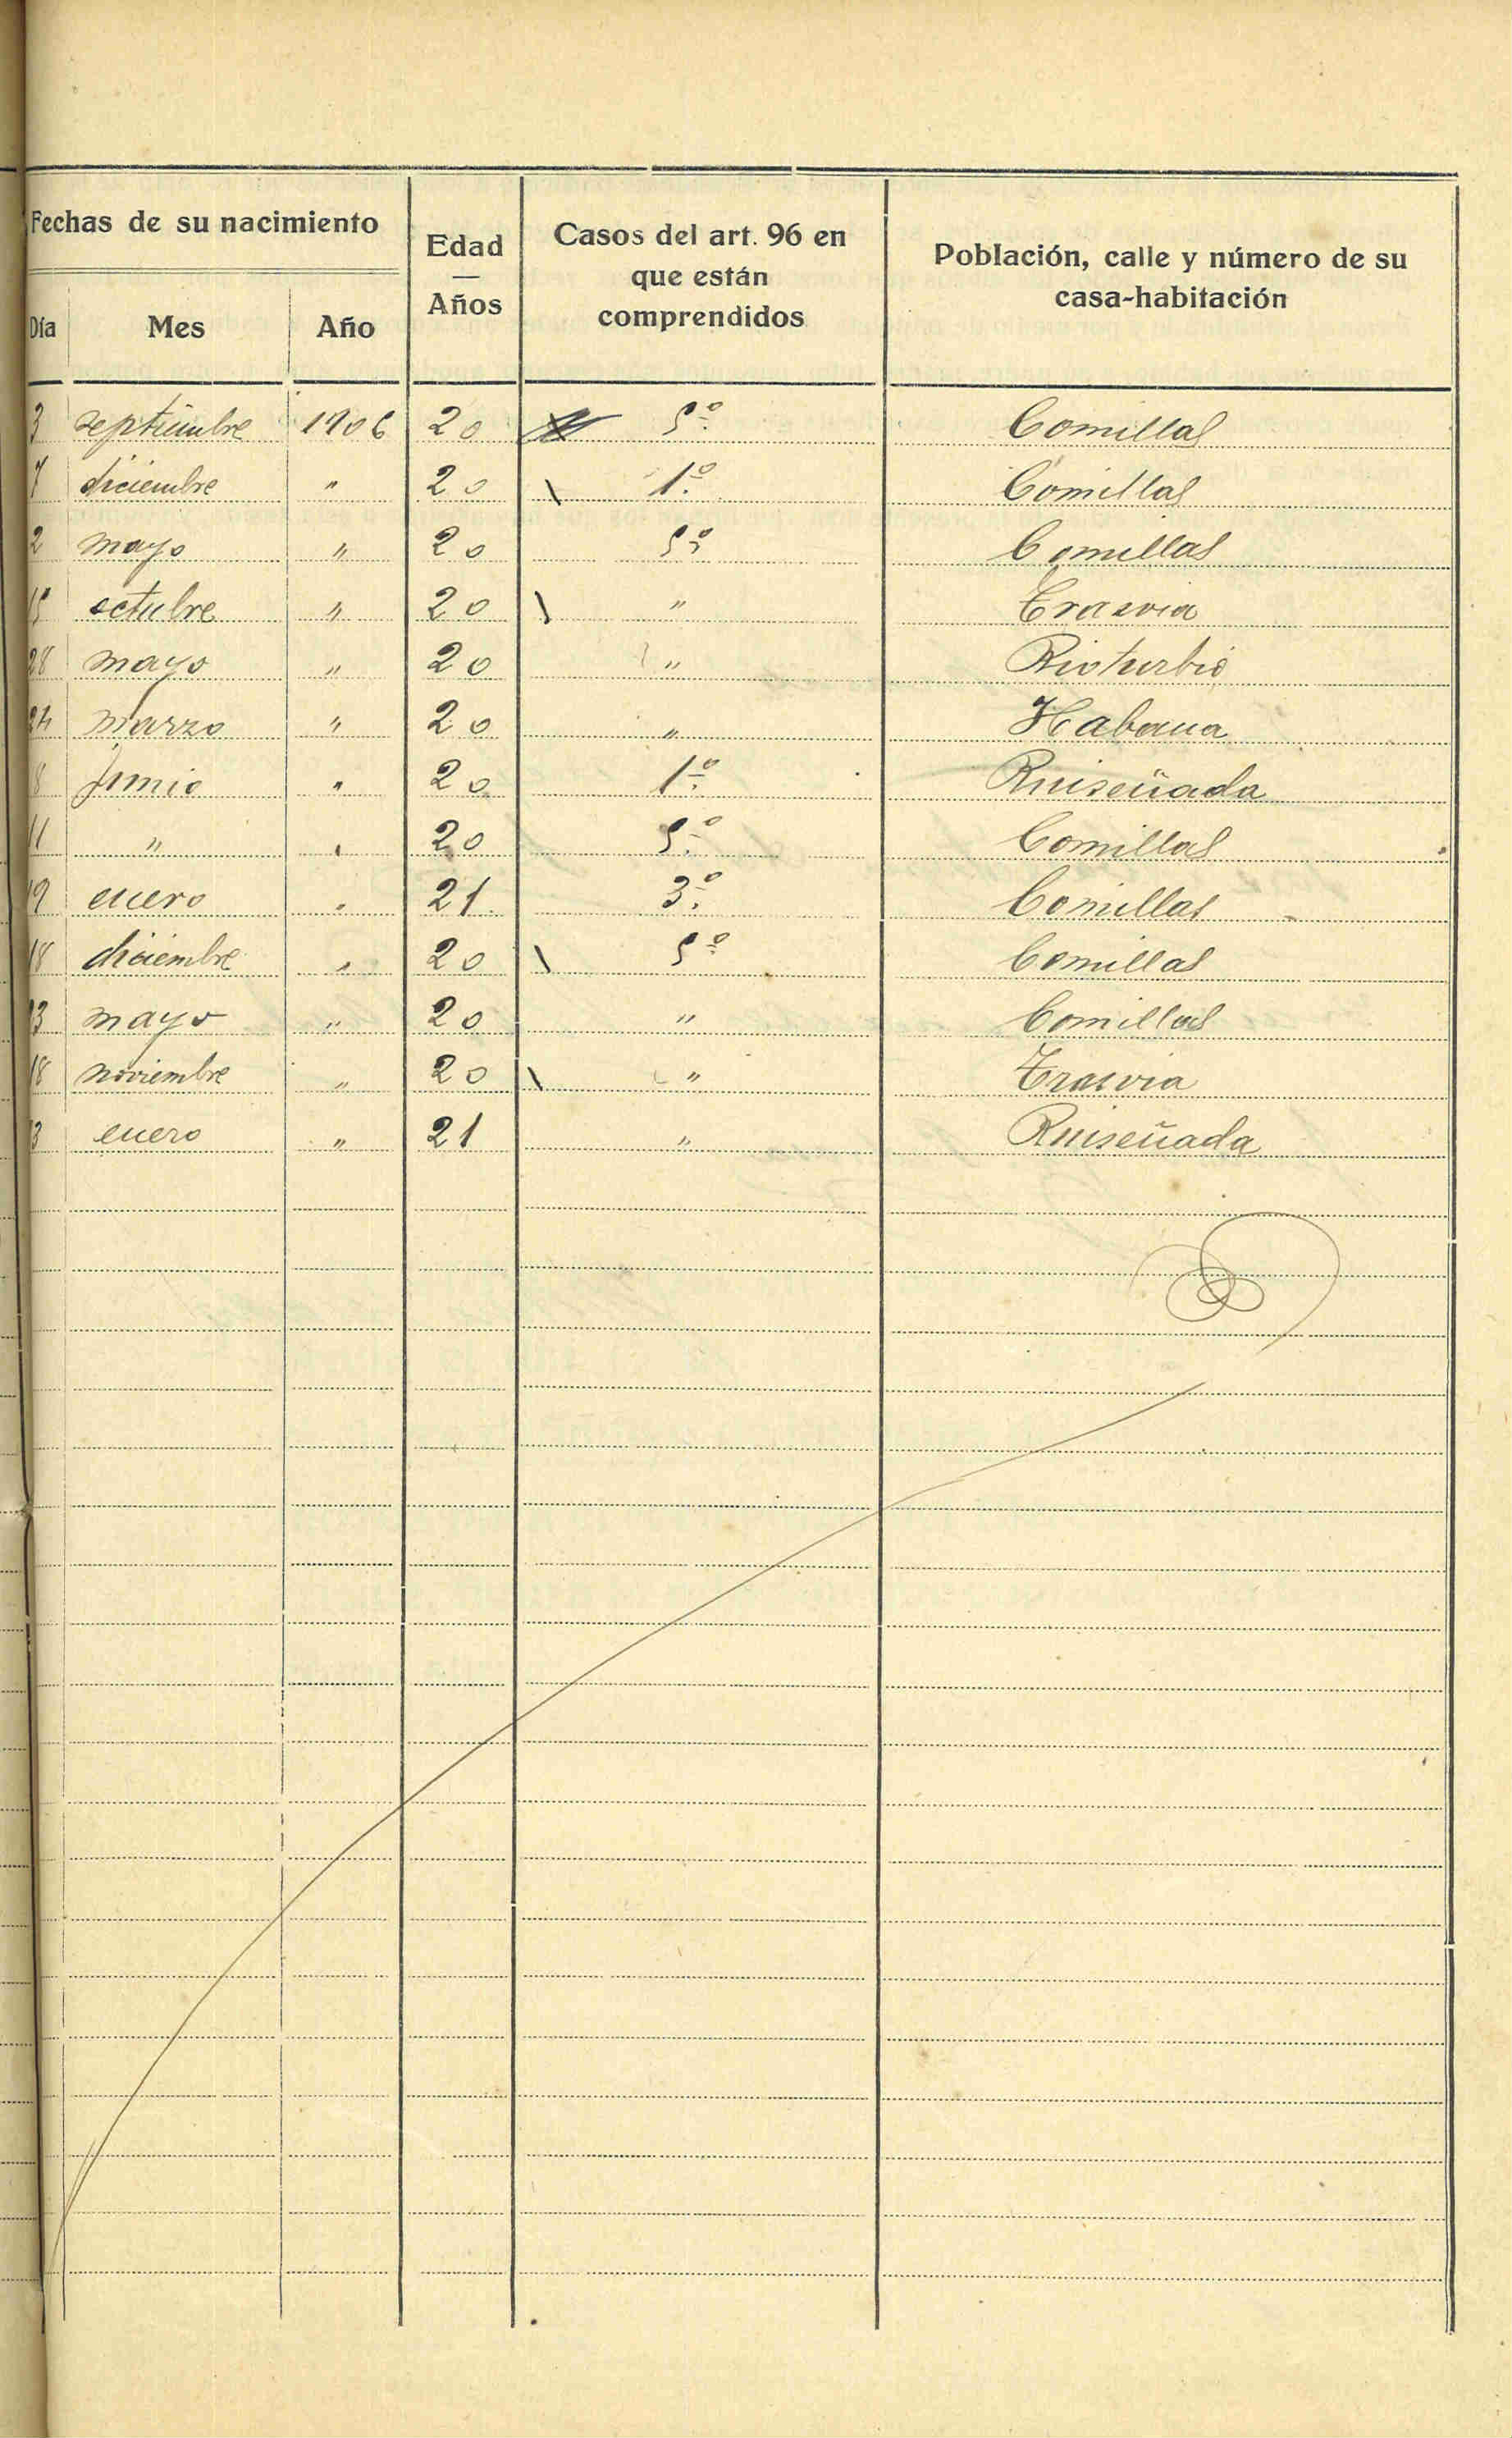 Fechas de su nacimiento
Día Mes Año
Edad
—
Años
Casos del art. 96 en
que están
comprendidos
Población, calle y número de su
casa-habitación
3 septiembre 1906 20 5º Comillas
7 diciembre " 20 \ 1º Comillas
2 mayo " 20 5º Comillas
15 octubre " 20 \ " Trasvia
28 mayo " 20 " Rioturbio
24 marzo " 20 " Habana
8 Junio " 20 1º Ruiseñada
11 " " 20 5º Comillas
19 enero " 21 3º Comillas
18 diciembre " 20 \ 5º Comillas
13 mayo " 20 " Comillas
18 noviembre " 20 \ " Trasvia
3 enero " 21 " Ruiseñada